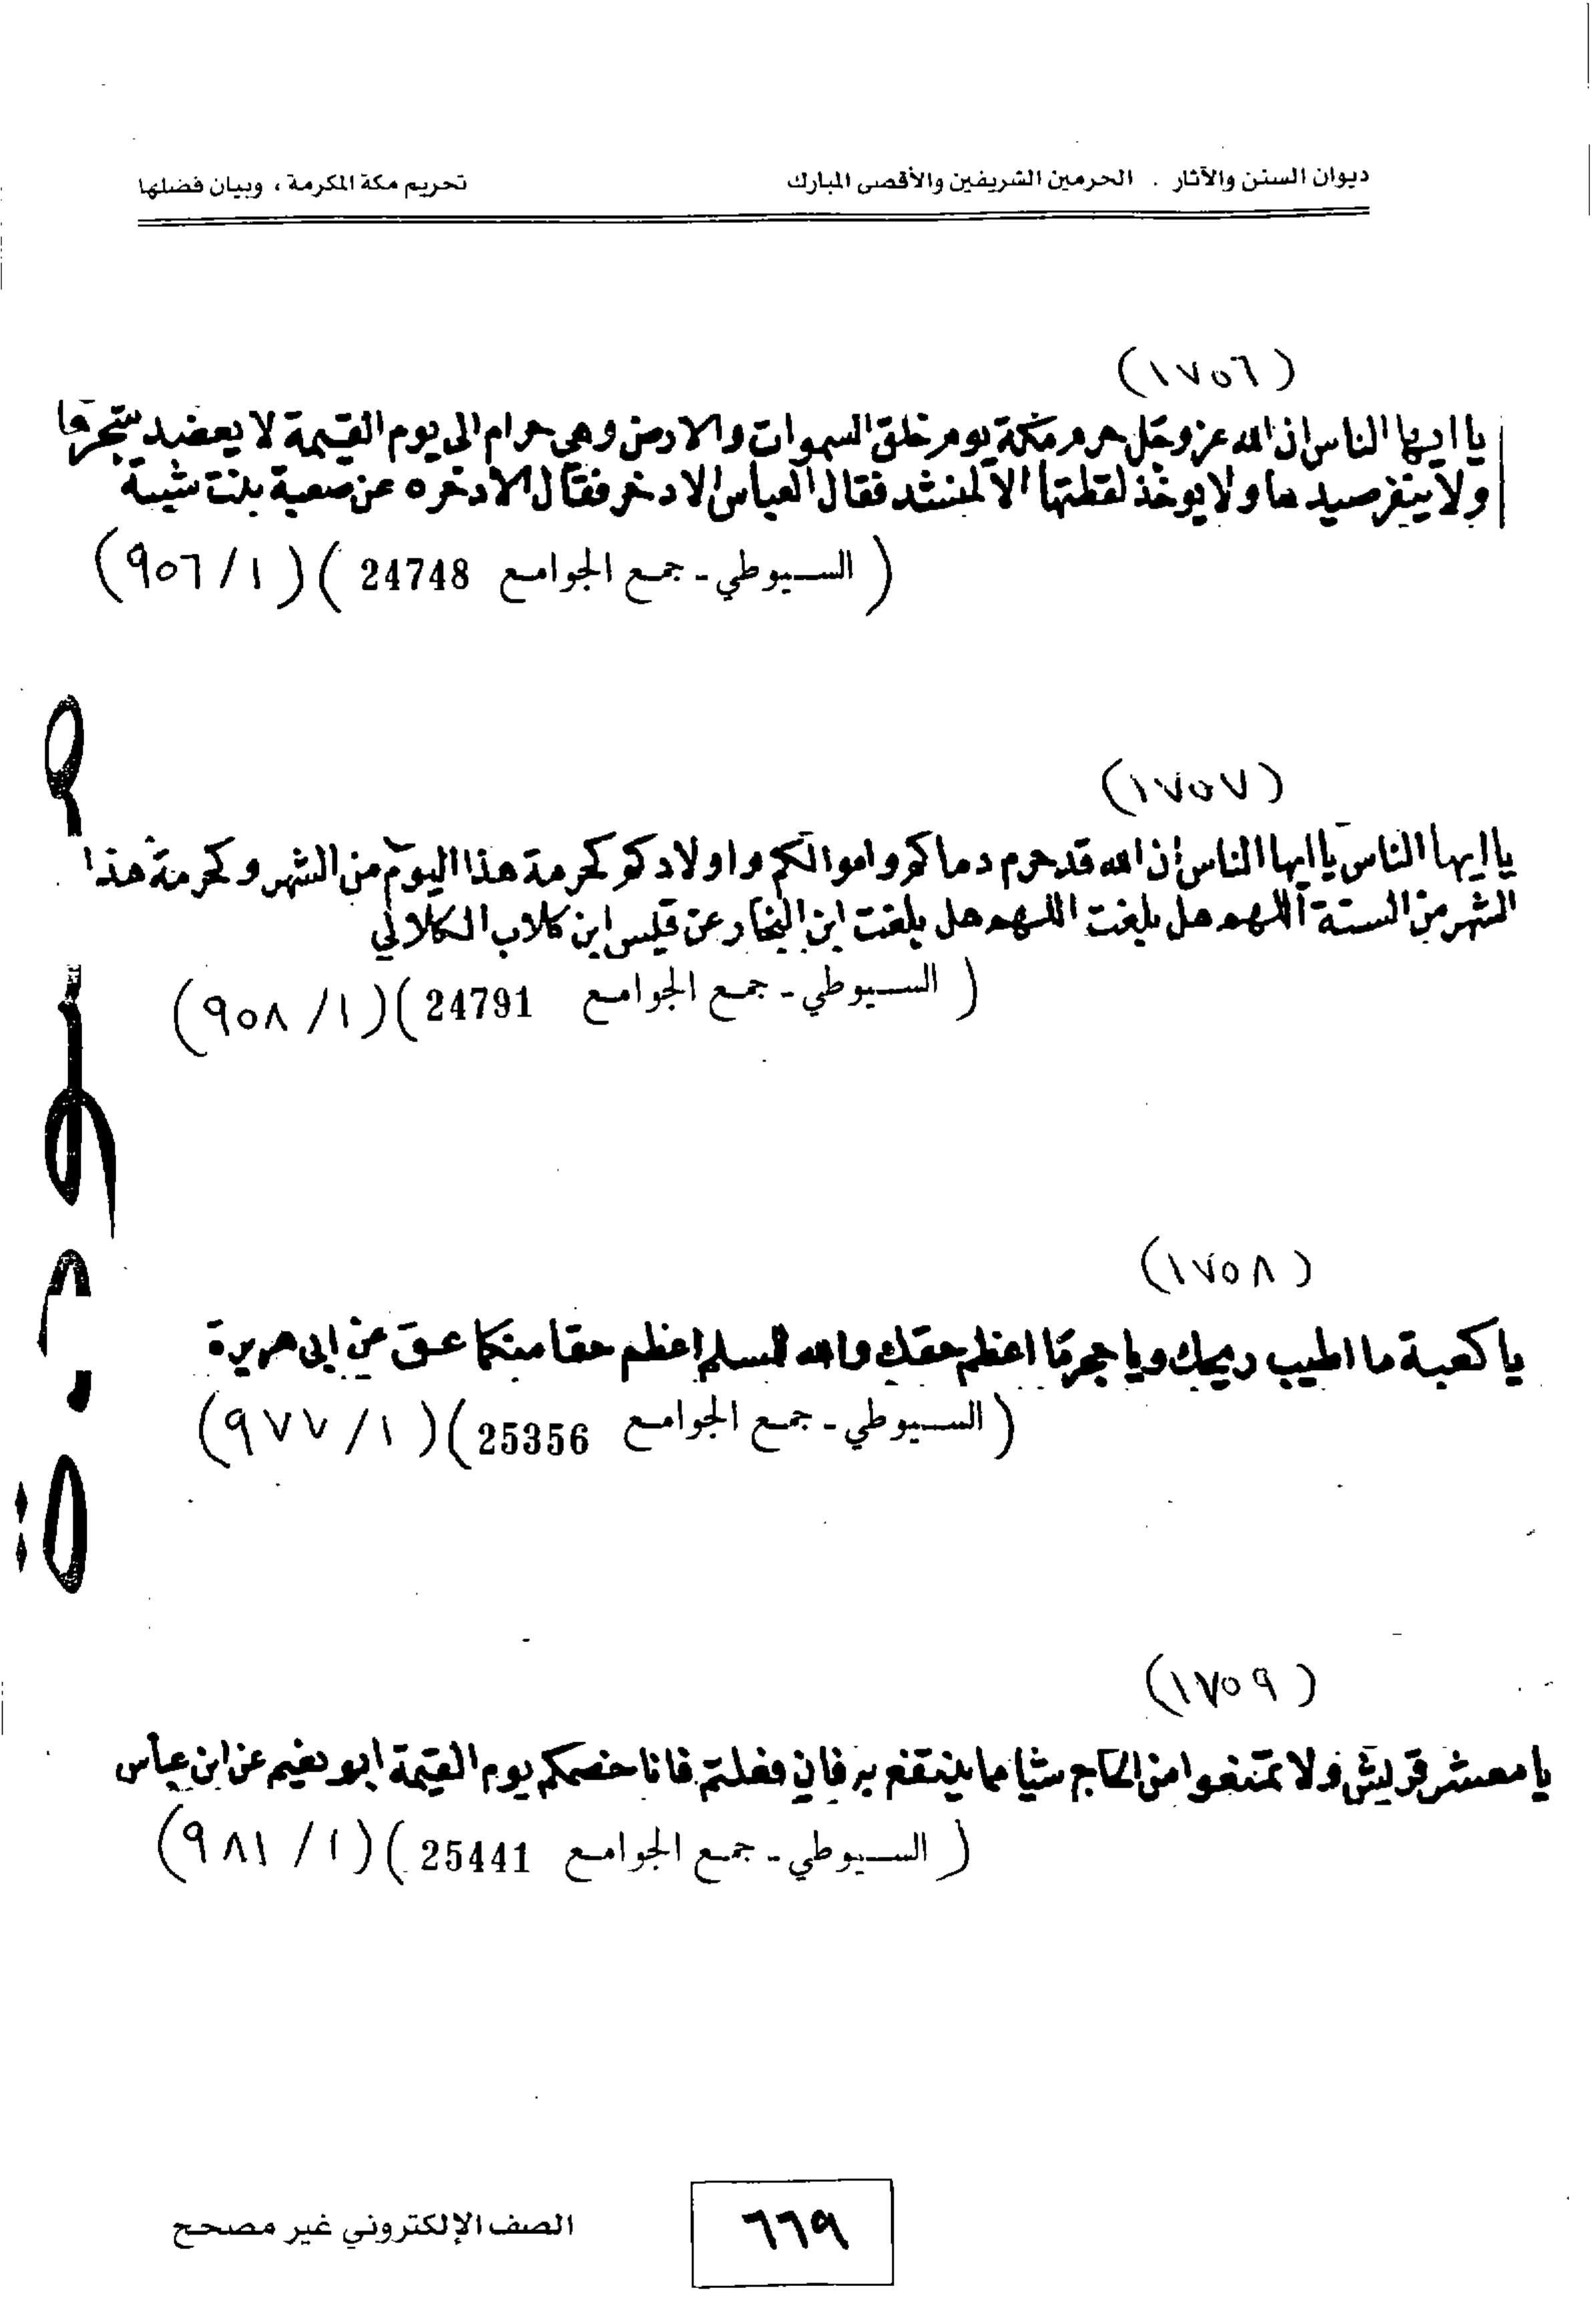 ديوان السنن والآثار . الحرمين الشريفين والأقصى المبارك
تحريم مكة المكرمة ، وبيان فضلها
(١٧٥٦)
يا ايها الناس ان الله عز وجل حرم مكة يوم خلق السموات والارض وهي حرام الى يوم القيمة لا يعضد شجرها
ولا ينفر صيدها ولا يوخذ لقطتها الا لمنشد فقال العباس الا الادخر فقال الا الادخر ه عن صفية بنت شيبة
(السيوطي - جمع الجوامع 24748) (١/٩٥٦)
(١٧٥٧)
يا ايها الناس يا ايها الناس ان الله قد حرم دماكم واموالكم واولادكم كحرمة هذا اليوم من الشهر وكحرمة هذا
الشهر من السنة اللهم هل بلغت اللهم هل بلغت ابن النجار عن قيس ابن كلاب الكلابي
(السيوطي - جمع الجوامع 24791) (١/٩٥٨)
(١٧٥٨)
يا كعبة ما اطيب ريحك ويا حجر ما اعظم حقك والله للمسلم اعظم حقا منكما عق عن ابى هريرة
(السيوطي - جمع الجوامع 25356) (١/٩٧٧)
(١٧٥٩)
يا معشر قريش ولا تمنعوا من الحاج شيا مما ينتفع به فان فعلتم فانا خصمكم يوم القيمة ابو نعيم عن ابن عباس
(السيوطي - جمع الجوامع 25441) (١/٩٨١)
٦٦٩
الصف الإلكتروني غير مصحح